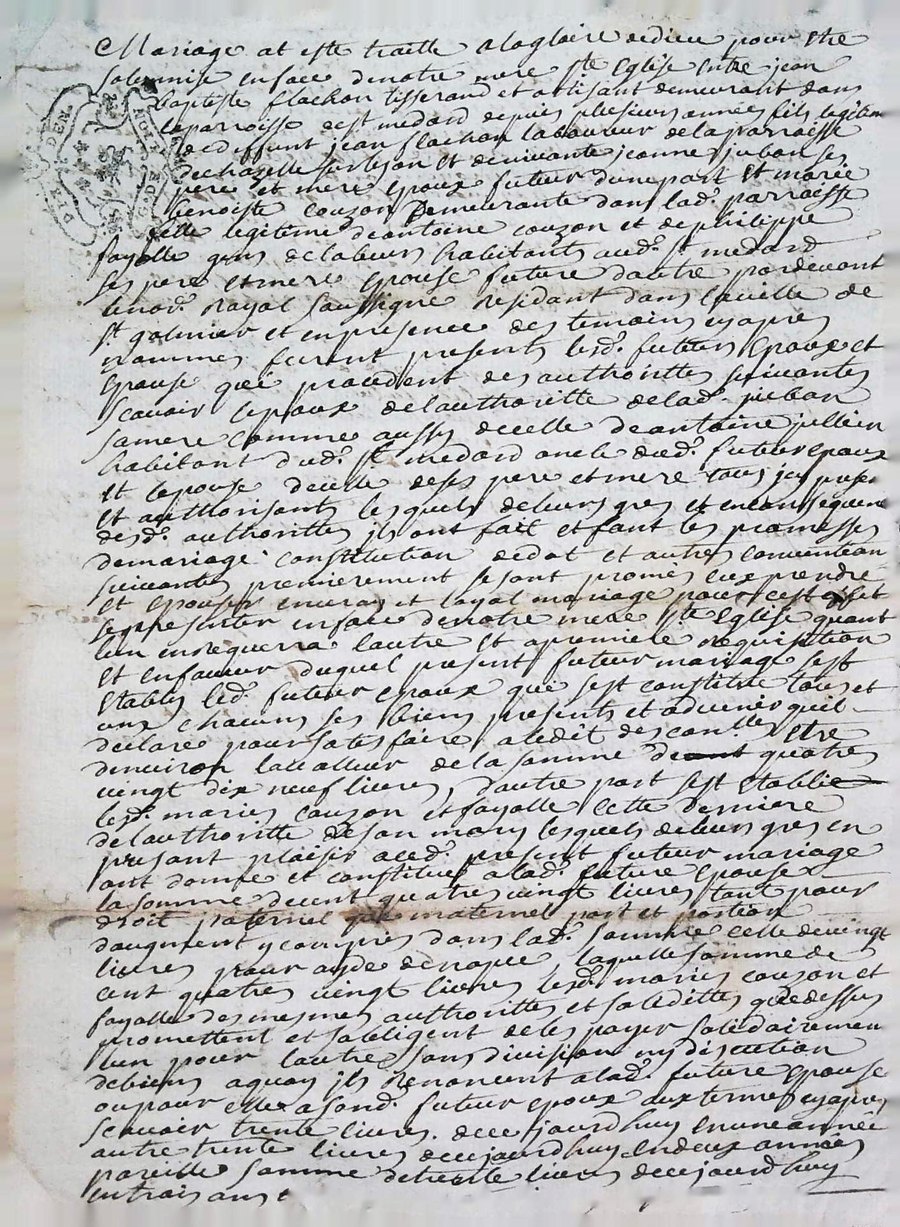 Mariage at este traitte a la gloire de dieu pour etre
solemnise en face de notre mere ste Eglise entre jean
baptiste flachon tisserand et artisant demeurant dans
la parroisse de st medard depuis plusieurs années fils legitime
de deffunt jean flachon laboureur de la parroisse
de chazelle sur lion et de vivante jeanne juban ses
pere et mere epoux futur d'une part Et marie
benoiste couzon Demeurante dans lad. parroisse
fille legitime d'antoine couzon et de philippe
fayolle gens de labeur habitants aud. st medard
ses pere et mere Epouse future d'autre pardevant
le no.re Royal Soussigné residant dans la ville de
st galmier et en presence des temoins cy apres
nommes furent presents lesd. futurs Epoux et
Epouse qui procedent des authorittes suivantes
scavoir lepoux de l'authoritte de lad. juban
sa mere comme aussy de celle de antoine jullien
habitant dud. st medard oncle dud. futur epoux
et lepouse de celle de ses pere et mere tous jcy presents
et authorisants lesquels de leurs gres et en consequence
desd. authorittes jls ont fait et font les promesses
de mariage constitution de dot et autres convention
suivantes premierement se sont promis eux prendre
et epouser en vray et loyal mariage pour cest effet
se presenter en face de notre mere ste Eglise quant
lun en requerra lautre et a premiere requisition
Et en faveur duquel present futur mariage sest
Etably led. futur epoux qui sest constitué tous et
uns chacuns ses biens presents et advenir quil
declare pour satisfaire a ledit des con.lles Etre
d'environ la valleur de la somme de quatre
vingt dix neuf livres, d'autre part sest Etablie
lesd. maries couzon et fayolle cette derniere
de l'authoritte de son mary lesquels de leurs gres en
presant plaisir aud. present futur mariage
ont donne et constitué a lad. future epouse
la somme de cent quatre vingt livres tant pour
droit paternel que maternel part et portion
daugment y compris dans lad. somme celle de vingt
livres pour ayde de nopce laquelle somme de
cent quatre vingt livres lesd. maries couzon et
fayolle des mesmes authorittes et sollidittes que dessus
promettent et sobligent de les payer solidairement
lun pour lautre sans division ny discution
de biens a quoy jls Renoncent a lad. future epouse
ou pour elle a sond. futur epoux aux termes cy apres
scavoir trente livres de ce jourd'huy en une année
autre trente livres de ce jourd'huy en deux années
pareille somme de trente livres de ce jourd'huy
en trois ans